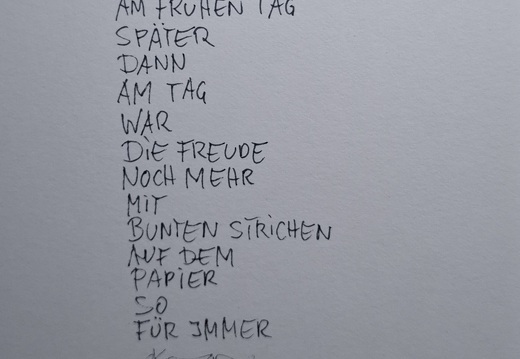 AM FRÜHEN TAG
SPÄTER
DANN
AM TAG
WAR
DIE FREUDE
NOCH MEHR
MIT
BUNTEN STRICHEN
AUF DEM
PAPIER
SO
FÜR IMMER